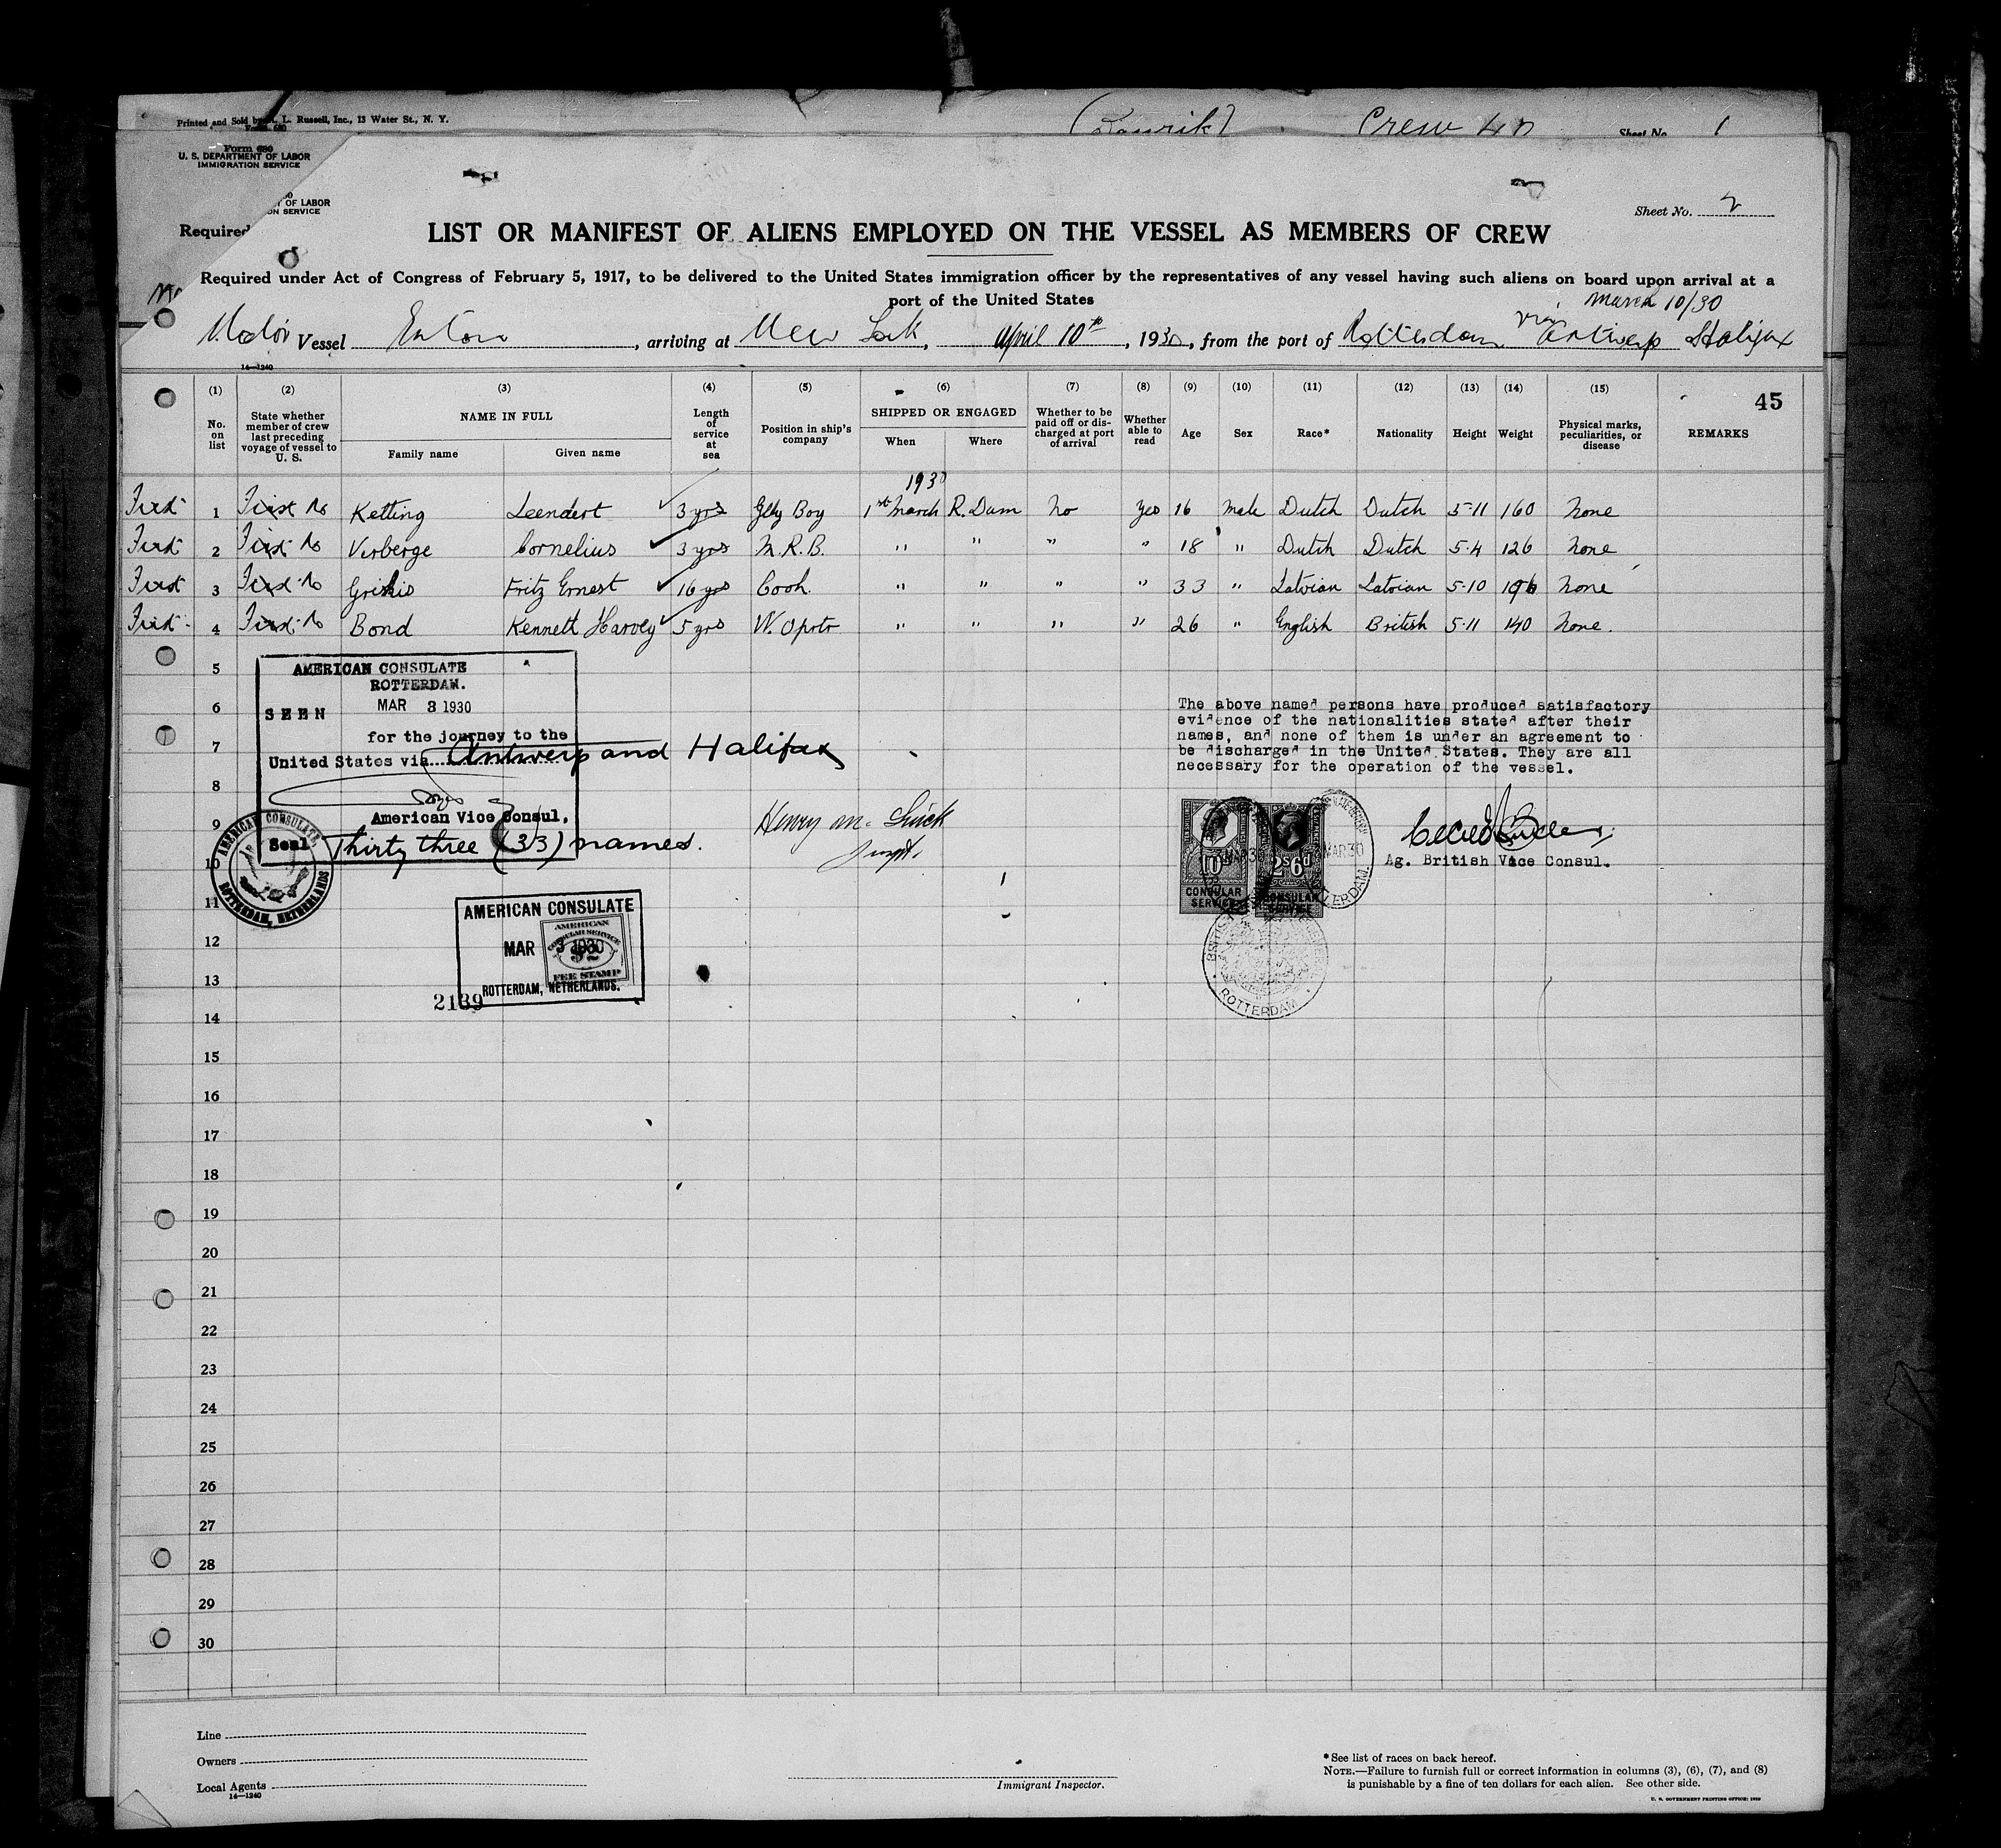 Printed and Sold by L. Russell, Inc., 13 Water St., N. Y.
Crew
Sheet No. 1
Form 680
U. S. DEPARTMENT OF LABOR
IMMIGRATION SERVICE
OF LABOR
SERVICE
Sheet No. 2
Required
LIST OR MANIFEST OF ALIENS EMPLOYED ON THE VESSEL AS MEMBERS OF CREW
Required under Act of Congress of February 5, 1917, to be delivered to the United States immigration officer by the representatives of any vessel having such aliens on board upon arrival at a
port of the United States
March 10/30
Motor Vessel , arriving at New York, April 10th, 1930, from the port of Rotterdam via Antwerp Halifax
14—1240
(1) (2) (3) (4) (5) (6) (7) (8) (9) (10) (11) (12) (13) (14) (15)
45
No. on list
State whether member of crew last preceding voyage of vessel to U. S.
NAME IN FULL
Family name
Given name
Length of service at sea
Position in ship's company
SHIPPED OR ENGAGED
When
Where
Whether to be paid off or discharged at port of arrival
Whether able to read
Age
Sex
Race*
Nationality
Height
Weight
Physical marks, peculiarities, or disease
REMARKS
1930
First 1 First No Ketting Leendert 3 yrs Glly Boy 1st March R. Dam No Yes 16 Male Dutch Dutch 5-11 160 None
First 2 First No Verberge Cornelius 3 yrs M.R.B. " " " " 18 " Dutch Dutch 5-4 126 None
First 3 First No Fritz Ernest 16 yrs Cook. " " " " 33 " Latvian Latvian 5-10 None
First 4 First No Bond Kennett Harvey 5 yrs W. Oprtr " " " " 26 " English British 5-11 140 None.
5
6
7
8
9
10
11
12
13
14
15
16
17
18
19
20
21
22
23
24
25
26
27
28
29
30
AMERICAN CONSULATE
ROTTERDAM.
SEEN MAR 3 1930
for the journey to the
United States via Antwerp and Halifax
American Vice Consul.
Seal Thirty three (33) names.
AMERICAN CONSULATE
ROTTERDAM, NETHERLANDS
The above named persons have produced satisfactory
evidence of the nationalities stated after their
names, and none of them is under an agreement to
be discharged in the United States. They are all
necessary for the operation of the vessel.
Henry
Ag. British Vice Consul.
10
2s6d
CONSULAR SERVICE
CONSULAR SERVICE
3 MAR 30
MAR 30
ROTTERDAM
AMERICAN CONSULATE
MAR 3 1930
AMERICAN
CONSULAR SERVICE
$2
FEE STAMP
ROTTERDAM, NETHERLANDS.
2139
Line
Owners
Local Agents
14—1240
Immigrant Inspector.
*See list of races on back hereof.
NOTE.—Failure to furnish full or correct information in columns (3), (6), (7), and (8)
is punishable by a fine of ten dollars for each alien. See other side.
U. S. GOVERNMENT PRINTING OFFICE: 1929